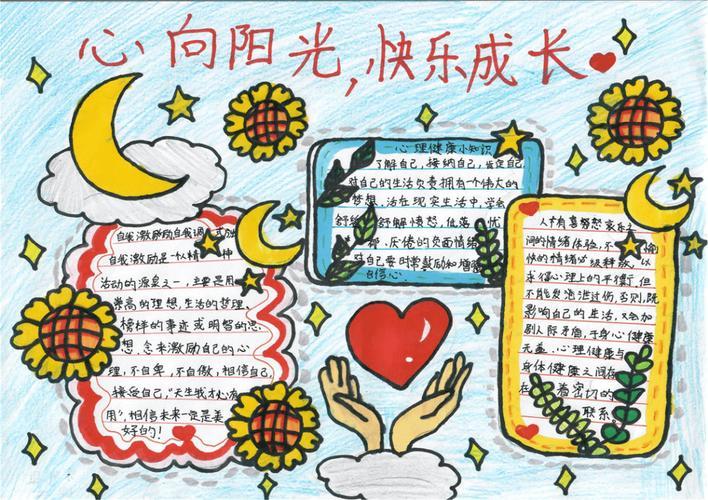 心向阳光,快乐成长
自我激励励自我调
自我激励是一
活动的源泉之一,主要是用
崇高的理想,生活的梦理,
榜样的事迹或明智的思
想、念来激励自己的心
理,不自卑,不自傲,相信自己,
接受自己,"天生我才必有
用",相信未来一定是美
好的!
心理健康小知识
了解自己,接纳自己,肯定自己
对自己的生活负责拥有一个伟大的
梦想,活在现实生活中,学会
舒解愤怒,低落、忧
郁、厌倦的负面情绪
对自己要时常鼓励和
自信心.
人有喜怒哀乐
间的情绪体验,不
快的情绪必级释放,以
求得心理上的平衡,但
不能发泄泄过伤,否则,既
影响自己的生活,又会加
剧人际矛盾,于身心健康
无益,心理健康与
身体健康之间存
在着密切的
联系